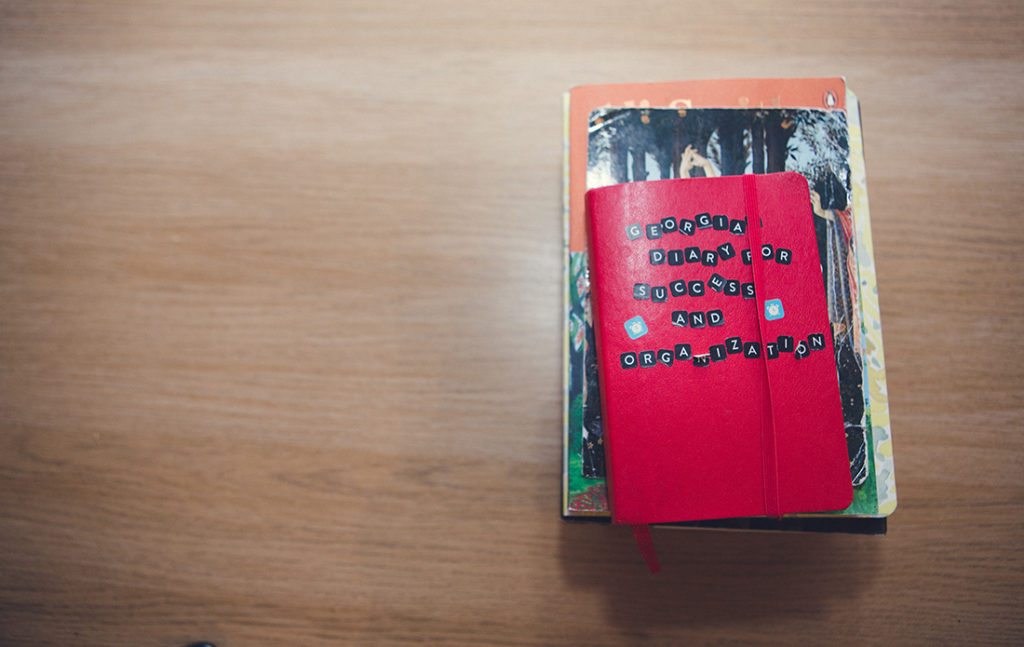 GEORGIA
DIARY FOR
SUCCESS
AND
ORGANIZATION